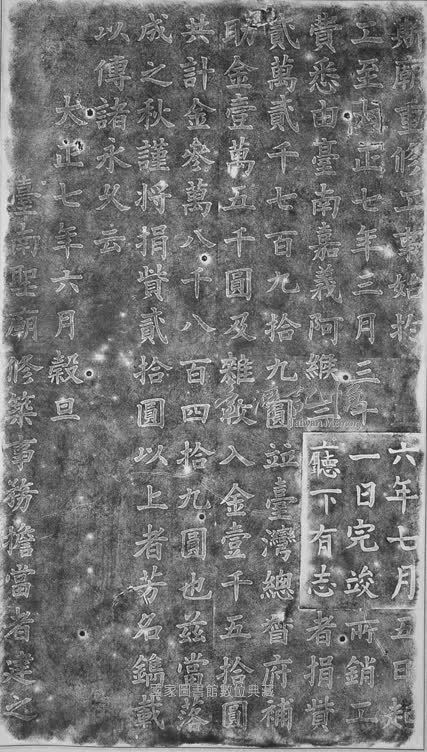 斯廟重修工事始於六年七月五日起
工至大正七年三月三十一日完竣所銷工
費悉由臺南嘉義阿緱三廳下有志者捐貲
貳萬貳千七百九拾九圓竝臺灣總督府補
助金壹萬五千圓及雜收入金壹千五拾圓
共計金參萬八千八百四拾九圓也茲當落
成之秋謹將捐貲貳拾圓以上者芳名鐫載
以傳諸永久云
大正七年六月穀旦
臺南聖廟修築事務擔當者建之
Taiwan Memory
國家圖書館數位典藏